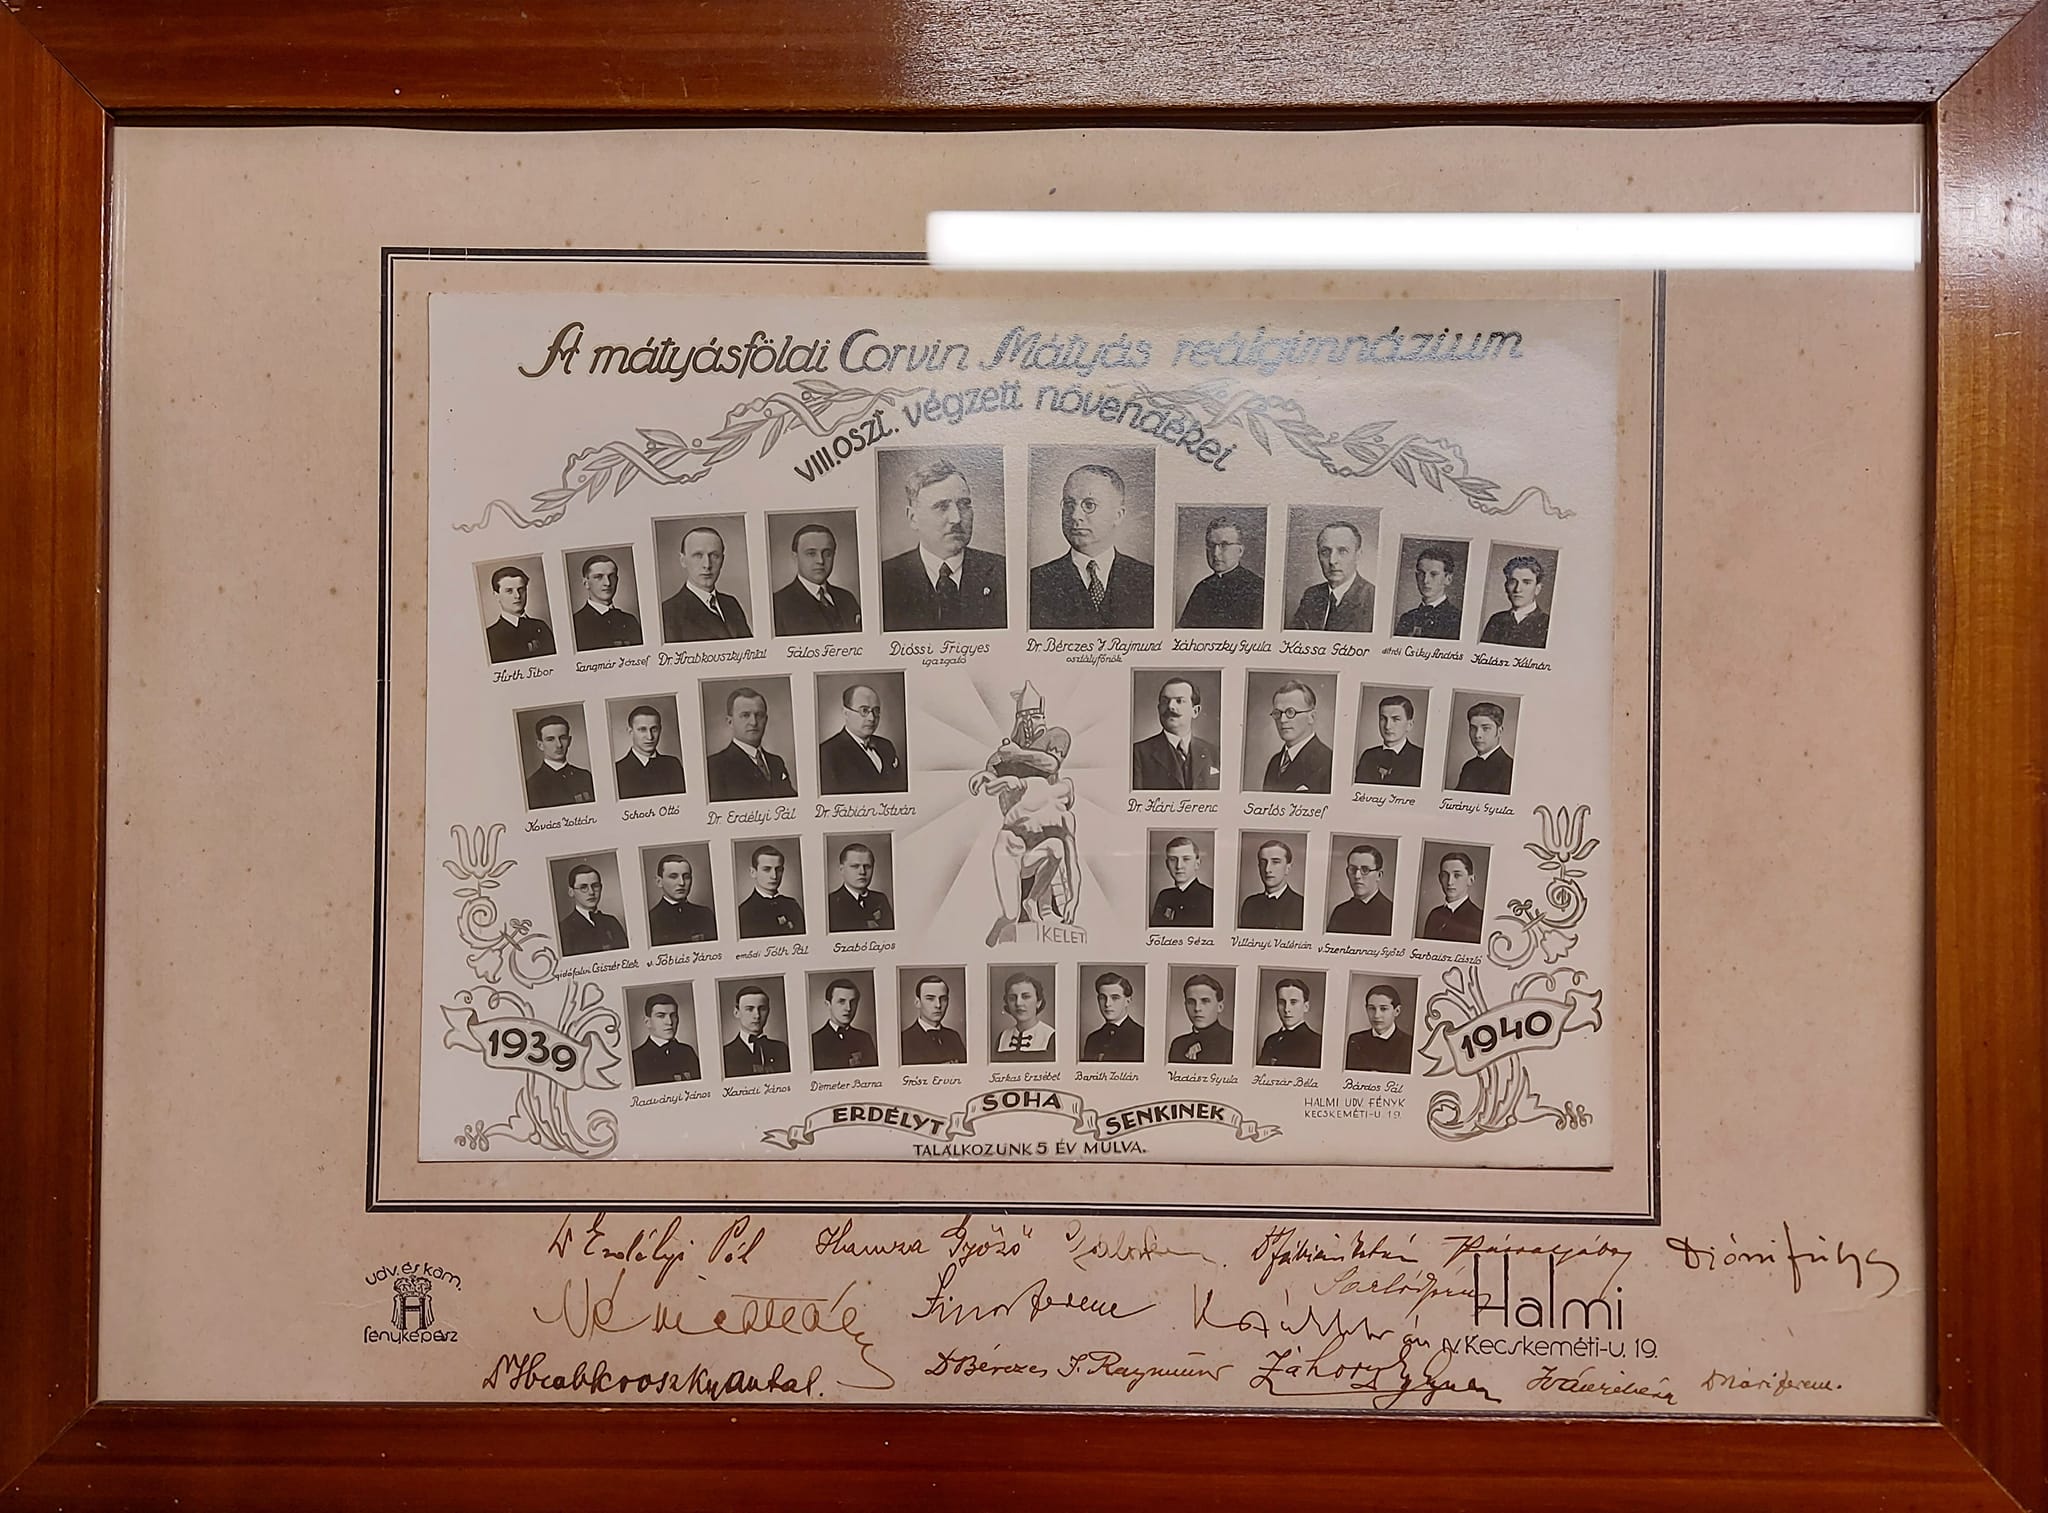 A mátyásföldi Corvin Mátyás reálgimnázium
VIII. oszt. végzett növendékei
Hirth Tibor
Langmár József
Dr. Hrabkovszky Antal
Gálos Ferenc
Dióssi Frigyes
igazgató
Dr. Bérczes J. Rajmund
osztályfőnök
Záhorszky Gyula
Kássa Gábor
ditrói Csiky András
Halász Kálmán
Kovács Zoltán
Schoch Ottó
Dr. Erdélyi Pál
Dr. Fábián István
Dr. Hári Ferenc
Sarlós József
Lévay Imre
Turányi Gyula
gidófalvi Csiszér Elek
v. Tóbiás János
emődi Tóth Pál
Szabó Lajos
KELET
Földes Géza
Villányi Valérián
v. Szentannay Győző
Garbaisz László
1939
1940
Radványi János
Karádi János
Demeter Barna
Grósz Ervin
Farkas Erzsébet
Baráth Zoltán
Vadász Gyula
Huszár Béla
Bárdos Pál
HALMI UDV. FÉNYK
KECSKEMÉTI-U. 19.
ERDÉLYT SOHA SENKINEK
TALÁLKOZUNK 5 ÉV MULVA.
Dr Erdélyi Pál Hamza Győző Dr Fábián István
udv. és kam.
H
fényképész
Halmi
IV. Kecskeméti-u. 19.
Dr Hrabkovszky Antal. Dr Bérczes J. Raymund Záhorszky Gyula Dr Hári Ferenc.